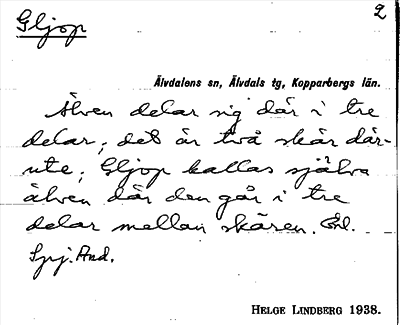 Gljop
2
Älvdalens sn, Älvdals tg, Kopparbergs län.
Älven delar sig där i tre
delar; det är två skär där-
ute; Gljop kallas själva
älven där den går i tre
delar mellan skären. Enl.
And.
HELGE LINDBERG 1938.